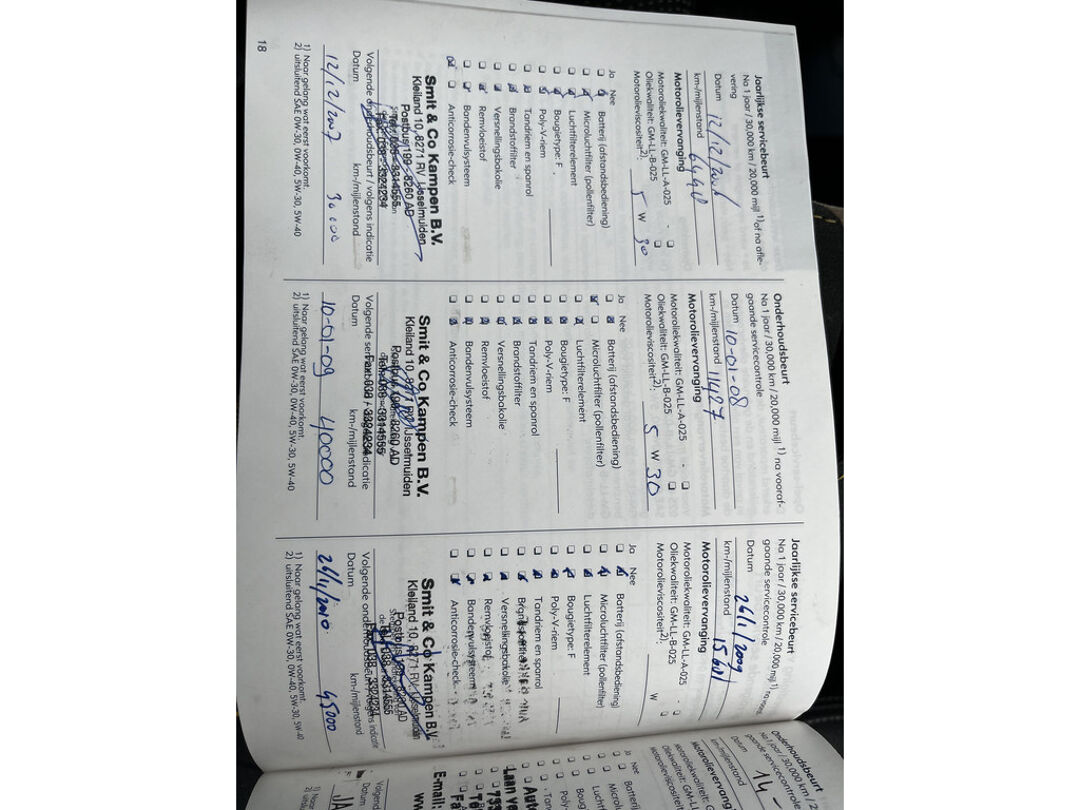 Jaarlijkse servicebeurt
Na 1 jaar / 30,000 km / 20,000 mijl 1) of na afle-
vering
Datum 12/12/2006
km-/mijlenstand 6440
Motorolievervanging
Motoroliekwaliteit: GM-LL-A-025 -
Oliekwaliteit: GM-LL-B-025
Motorolieviscositeit2): 5 W 30
Ja Nee
Batterij (afstandsbediening)
Microluchtfilter (pollenfilter)
Luchtfilterelement
Bougietype: F
Poly-V-riem
Tandriem en spanrol
Brandstoffilter
Versnellingsbakolie
Remvloeistof
Bandenvulsysteem
Anticorrosie-check
Smit & Co Kampen B.V.
Kleiland 10, 8271 RV IJsselmuiden
Postbus 199 - 8260 AD
Tel. 038 - 3314555
Fax: 038 - 3324234
Volgende onderhoudsbeurt / volgens indicatie
Datum km-/mijlenstand
12/12/2007 30000
1) Naar gelang wat eerst voorkomt.
2) uitsluitend SAE 0W-30, 0W-40, 5W-30, 5W-40
18
Onderhoudsbeurt
Na 1 jaar / 30,000 km / 20,000 mijl 1) na vooraf-
gaande servicecontrole
Datum 10-01-08
km-/mijlenstand 11427
Motorolievervanging
Motoroliekwaliteit: GM-LL-A-025 -
Oliekwaliteit: GM-LL-B-025
Motorolieviscositeit2): 5 W 30
Ja Nee
Batterij (afstandsbediening)
Microluchtfilter (pollenfilter)
Luchtfilterelement
Bougietype: F
Poly-V-riem
Tandriem en spanrol
Brandstoffilter
Versnellingsbakolie
Remvloeistof
Bandenvulsysteem
Anticorrosie-check
Smit & Co Kampen B.V.
Kleiland 10, 8271 RV IJsselmuiden
8260 AD
Tel. 038 - 3314555
Fax: 038 - 3324234
Datum km-/mijlenstand
10-01-09 40000
1) Naar gelang wat eerst voorkomt.
2) uitsluitend SAE 0W-30, 0W-40, 5W-30, 5W-40
Jaarlijkse servicebeurt
Na 1 jaar / 30,000 km / 20,000 mijl 1) na vooraf-
gaande servicecontrole
Datum 26/1/2009
km-/mijlenstand 15601
Motorolievervanging
Motoroliekwaliteit: GM-LL-A-025 -
Oliekwaliteit: GM-LL-B-025
Motorolieviscositeit2): W
Ja Nee
Batterij (afstandsbediening)
Microluchtfilter (pollenfilter)
Luchtfilterelement
Bougietype: F
Poly-V-riem
Tandriem en spanrol
Brandstoffilter
Versnellingsbakolie
Remvloeistof
Bandenvulsysteem
Anticorrosie-check
Smit & Co Kampen B.V.
Kleiland 10, 8271 RV IJsselmuiden
8260 AD
Tel. 038 - 3314555
Fax: 038 - 3324234
Datum km-/mijlenstand
26/1/2010 45000
1) Naar gelang wat eerst voorkomt.
2) uitsluitend SAE 0W-30, 0W-40, 5W-30, 5W-40
Onderhoudsbeurt
Na 1 jaar / 30,000 km / 2
gaande servicecontrole
Datum 14 -
km-/mijlenstand
Motorolievervang
Motoroliekwaliteit:
Oliekwaliteit: GM-
Motorolieviscositeit
Ja Nee
Batterij
Microl
Luchtf
Boug
Poly
Tan
Auto
Laan v
E-mail:
Volgende
Datum
JA